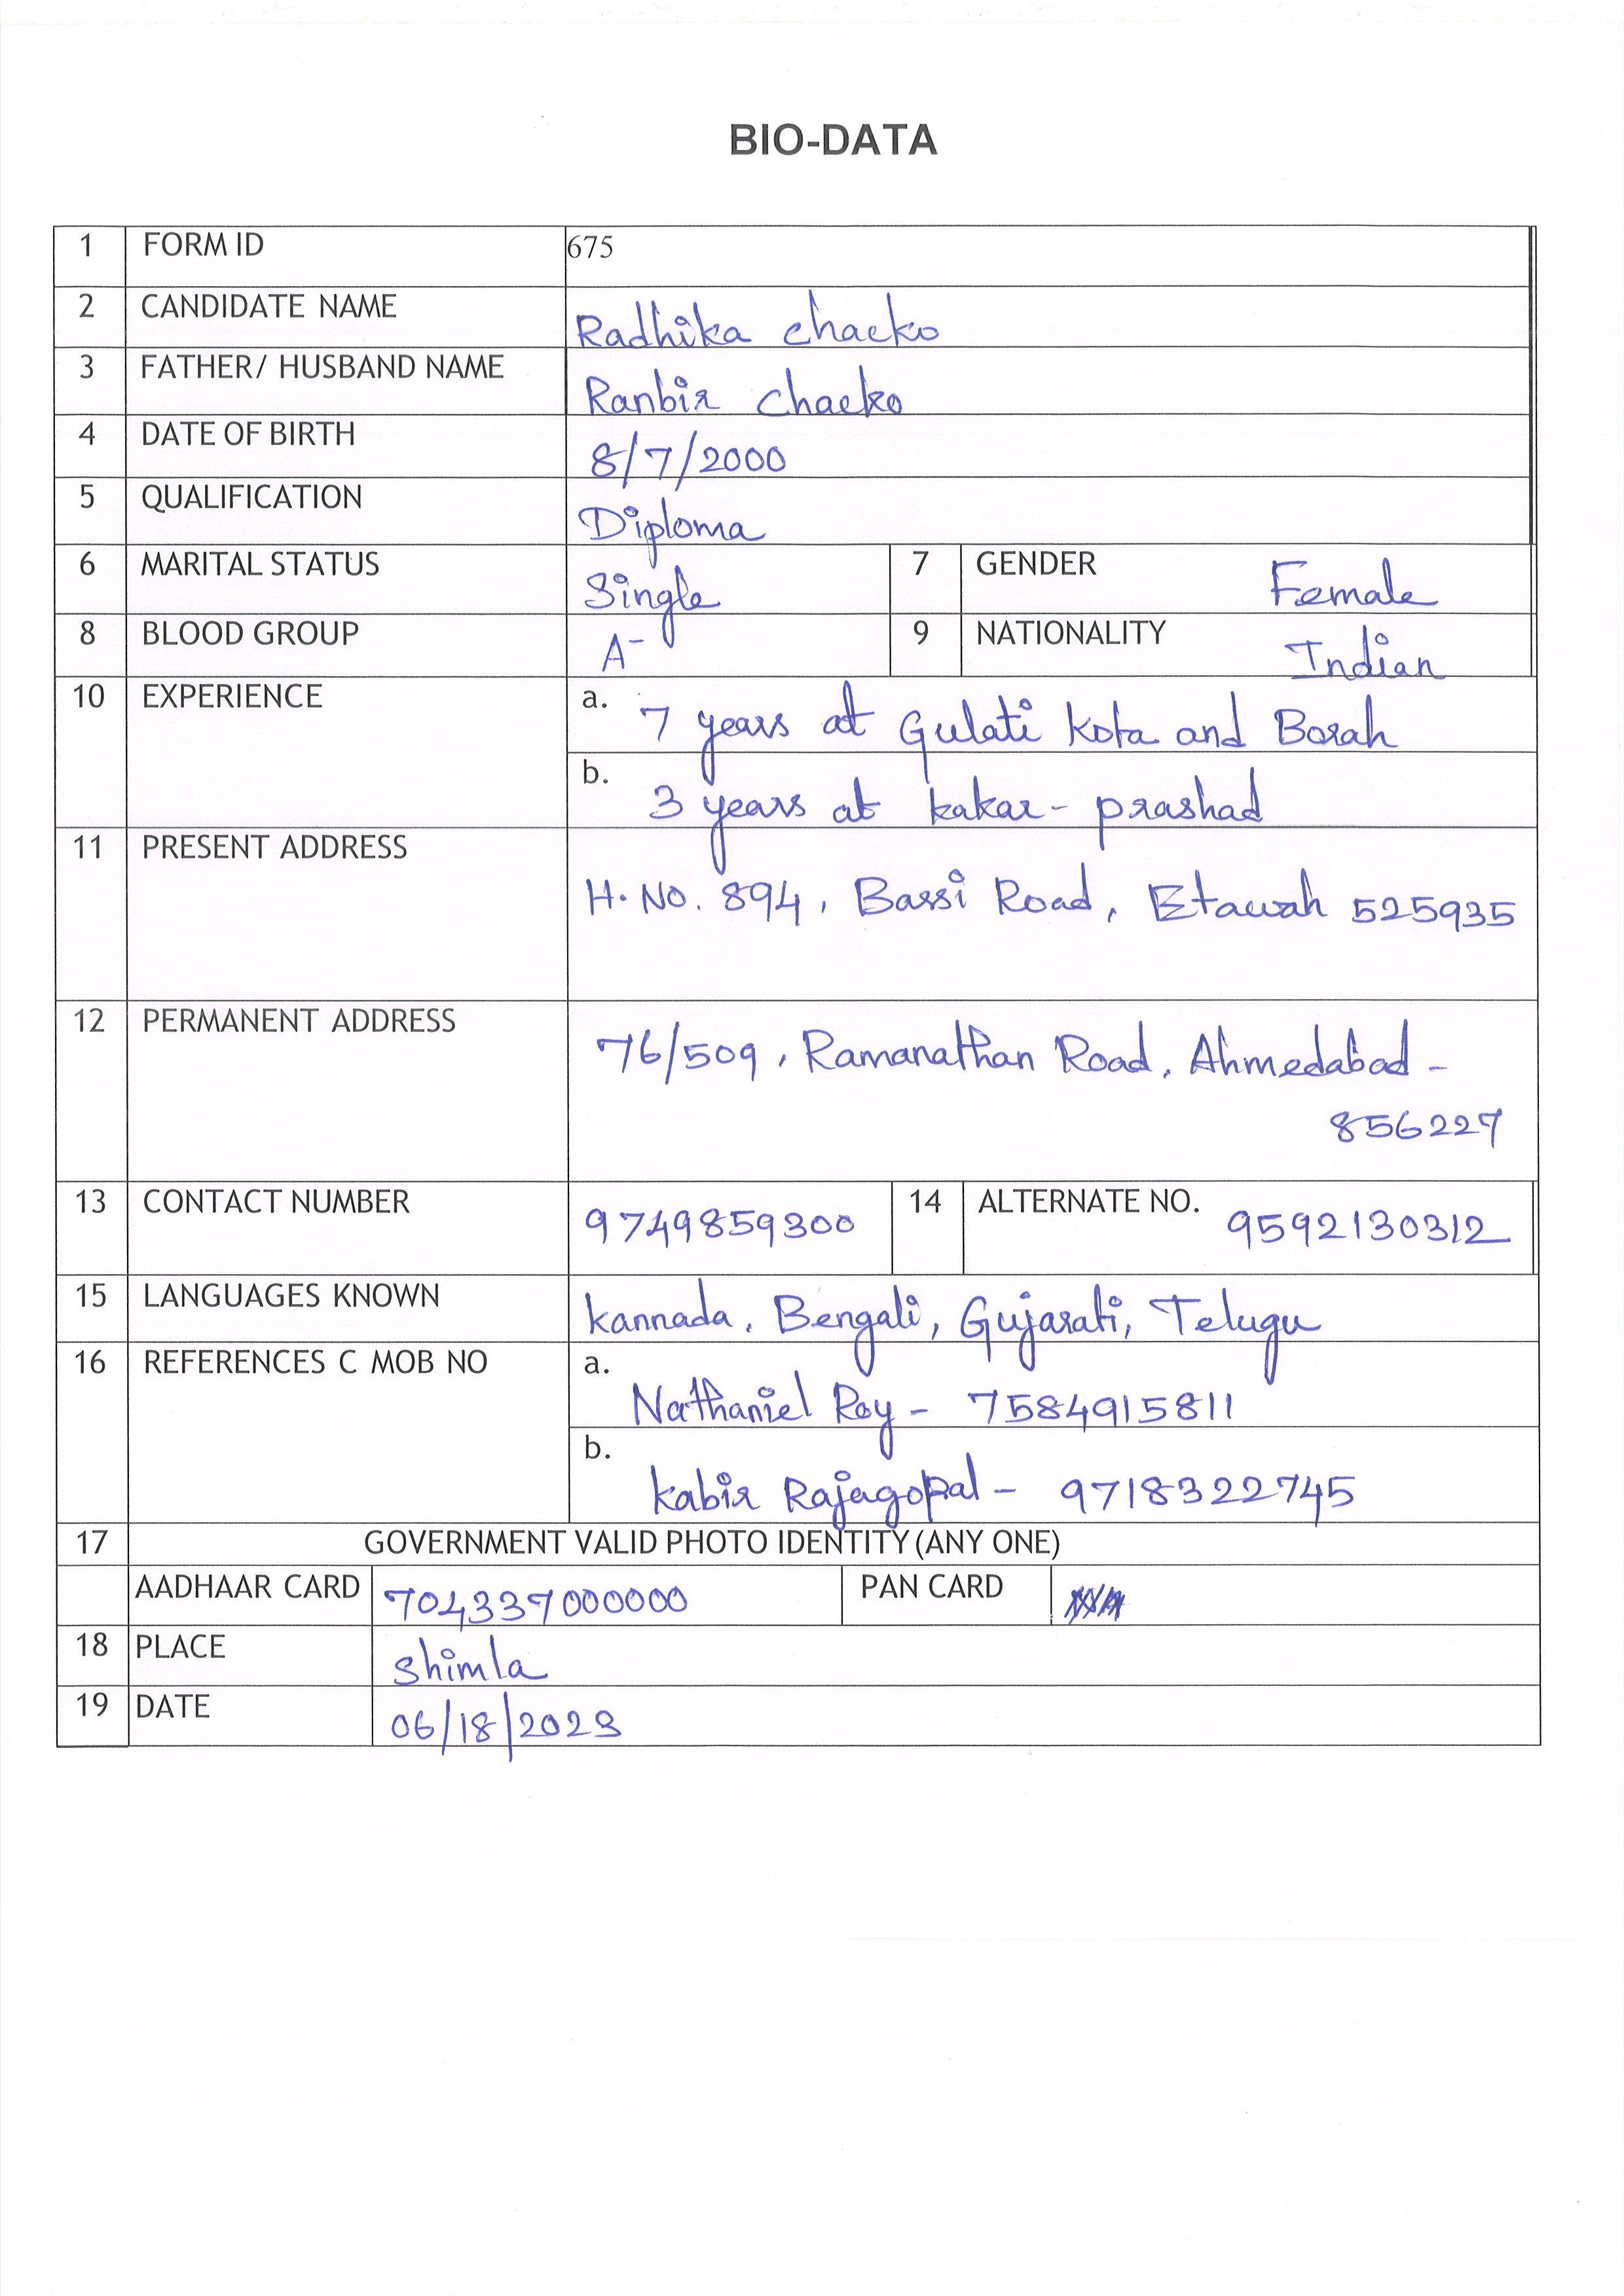 BIO-DATA
1 FORM ID 675
2 CANDIDATE NAME Radhika chacko
3 FATHER/ HUSBAND NAME Ranbir chacko
4 DATE OF BIRTH 8/7/2000
5 QUALIFICATION Diploma
6 MARITAL STATUS Single 7 GENDER Female
8 BLOOD GROUP A- 9 NATIONALITY Indian
10 EXPERIENCE a. 7 years at Gulati Kota and Borah
b. 3 years at kakar - prashad
11 PRESENT ADDRESS H. No. 894, Bassi Road, Etawah 525935
12 PERMANENT ADDRESS 76/509, Ramanathan Road, Ahmedabad -
856227
13 CONTACT NUMBER 9749859300 14 ALTERNATE NO. 9592130312
15 LANGUAGES KNOWN kannada, Bengali, Gujarati, Telugu
16 REFERENCES C MOB NO a. Nathaniel Roy - 7584915811
b. kabir Rajagopal - 9718322745
17 GOVERNMENT VALID PHOTO IDENTITY (ANY ONE)
AADHAAR CARD 704337000000 PAN CARD
18 PLACE Shimla
19 DATE 06/18/2023